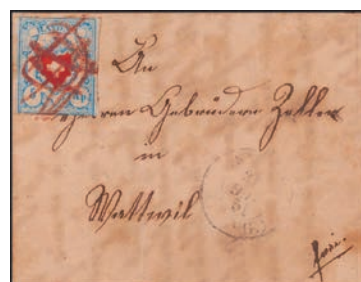 An
Herren Gebrüdern Zeller
in
Wattwil